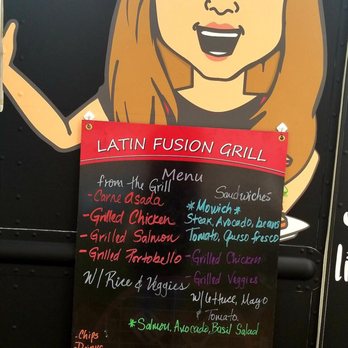 LATIN FUSION GRILL
Menu
from the Grill
- Carne Asada
- Grilled Chicken
- Grilled Salmon
- Grilled Portobello
W/ Rice & Veggies
Sandwiches
*Mowich*
Steak, Avocado, beans
Tomato, Queso fresco
- Grilled Chicken
- Grilled Veggies
W/ Lettuce, Mayo
& Tomato
*Salmon, Avocado, Basil Salad
- Chips